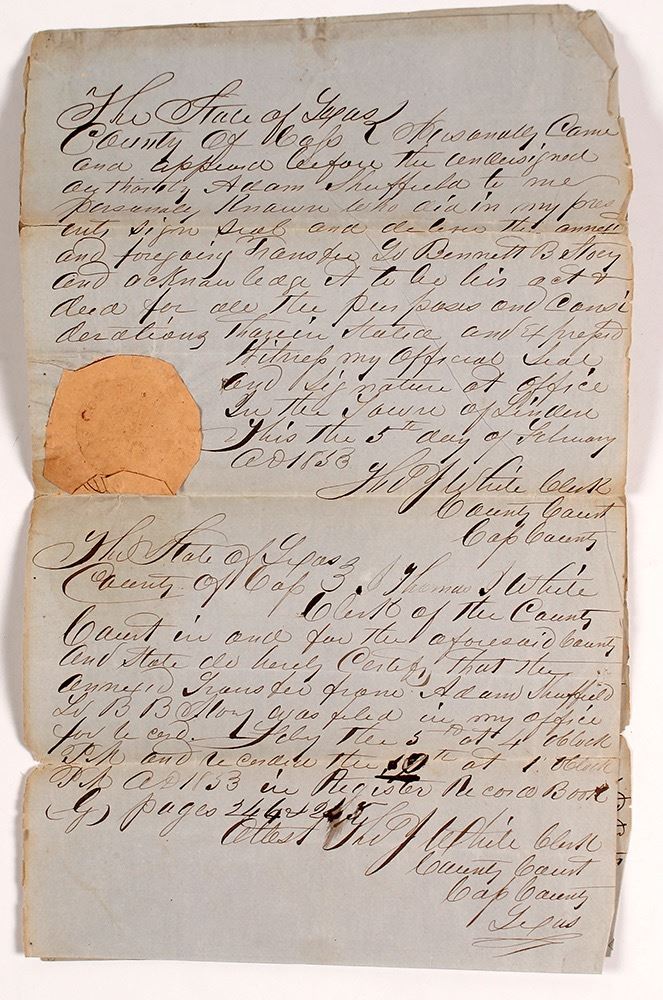 The State of Texas
County Of Cass } Personally Came
and appeard before the undersigned
authority Adam Sheffield to me
personally Known who did in my pres
ents sign seal and deliver the annext
and foregoing Transfer To Bennett B Story
and acknowledge it to be his act &
deed for all the purposes and Consi
derations Therein Stated and Expressd
Witness my Official Seal
and Signature at office
In the Town of Linden
This the 5th day of February
AD 1853
Tho J White Clerk
County Court
Cass County
The State of Texas }
County of Cass } I Thomas J White
Clerk of the County
Court in and for the aforesaid County
and State do herely Certify that the
annexed Transfer from Adam Sheffield
To B B Story was filed in my office
for record Feby the 5th at 4 Oclock
PM and recorded the 10th at 1 Oclock
PM AD 1853 in Register Record Book
G pages 246 & 247
Attest Tho J White Clerk
County Court
Cass County
Texas